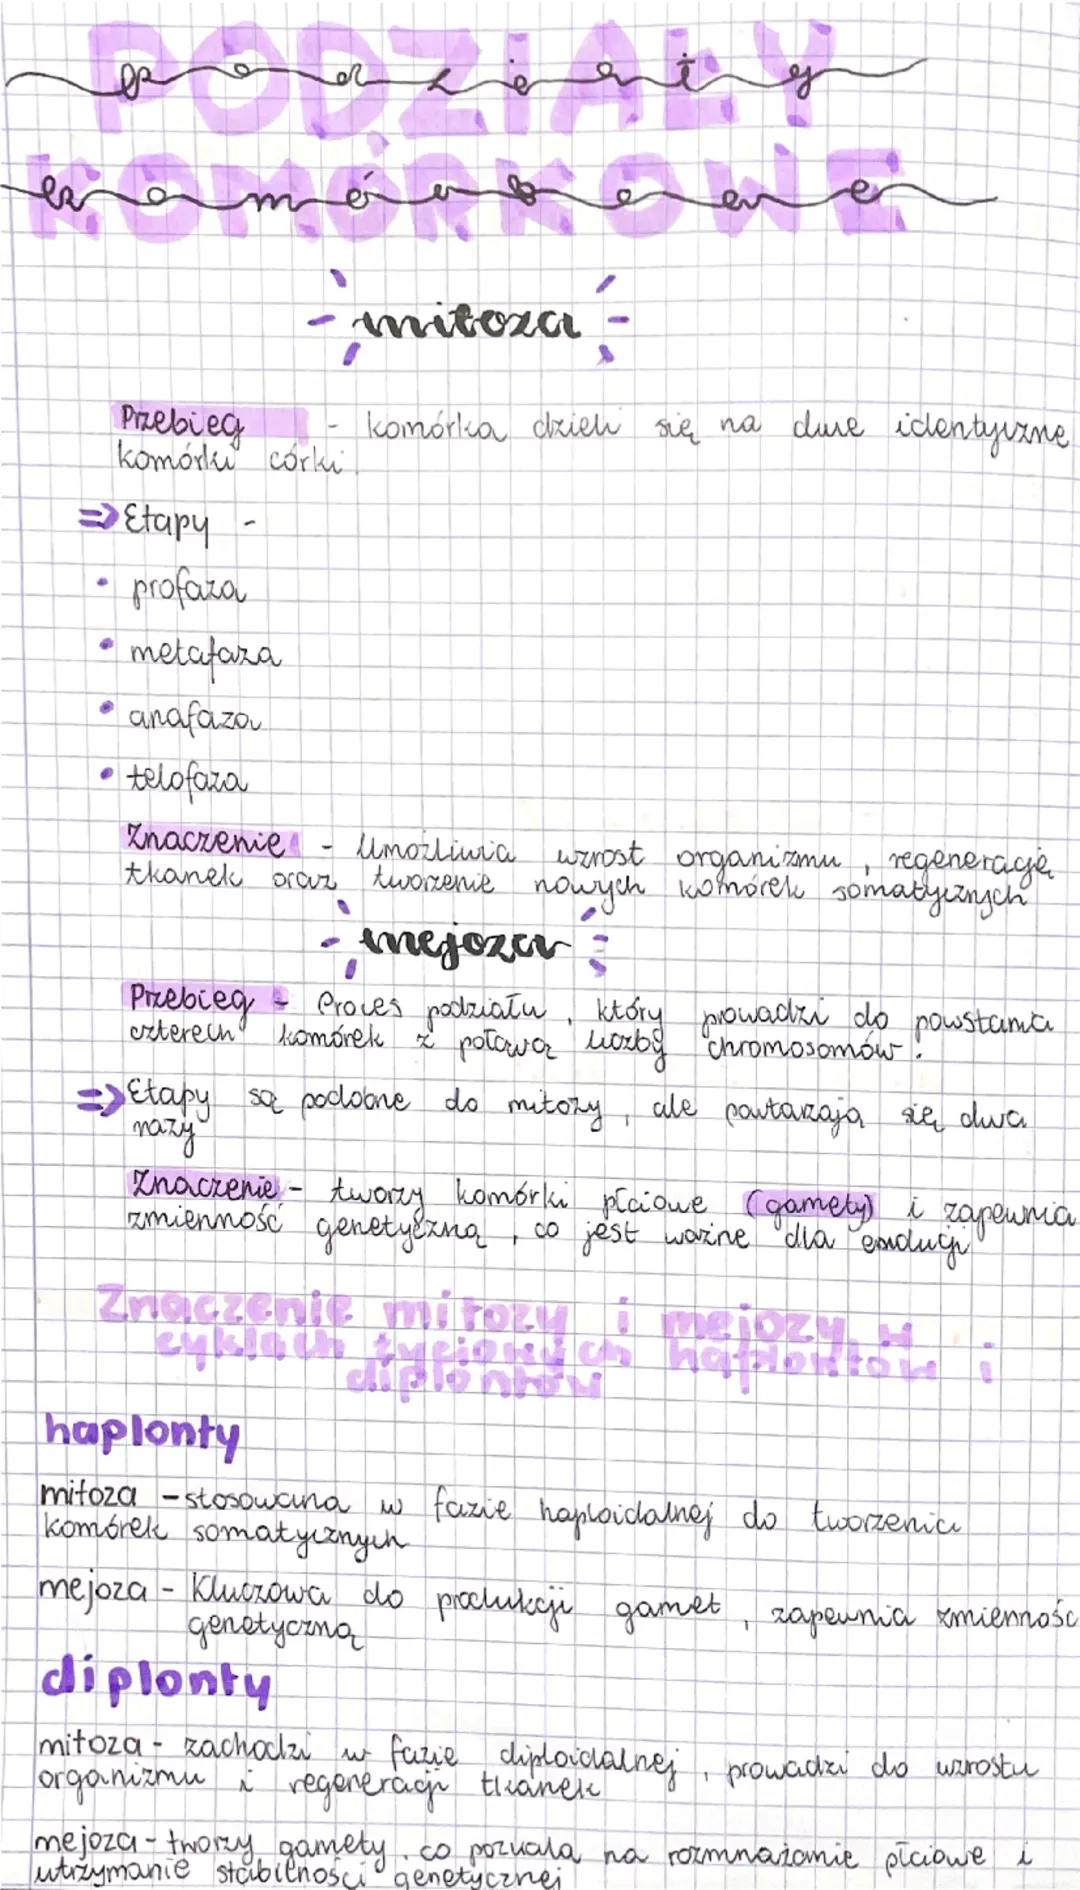 PODZIAŁY
podziały
KOMÓRKOWE
komórkowe
mitoza
Przebieg - komórka dzieli się na dwie identyczne
komórki córki.
=> Etapy -
• profaza
• metafaza
• anafaza
• telofaza
Znaczenie - Umożliwia wzrost organizmu, regenerację
tkanek oraz tworzenie nowych komórek somatycznych
mejoza
Przebieg - Proces podziału, który prowadzi do powstania
czterech komórek z połową liczby chromosomów.
=> Etapy są podobne do mitozy, ale powtarzają się dwa
razy
Znaczenie - tworzy komórki płciowe (gamety) i zapewnia
zmienność genetyczną, co jest ważne dla ewolucji
Znaczenie mitozy i mejozy w
cyklach życiowych haplontów i
diplontów
haplonty
mitoza - stosowana w fazie haploidalnej do tworzenia
komórek somatycznych
mejoza - Kluczowa do produkcji gamet, zapewnia zmienność
genetyczną
diplonty
mitoza - zachodzi w fazie diploidalnej, prowadzi do wzrostu
organizmu i regeneracji tkanek
mejoza - tworzy gamety, co pozwala na rozmnażanie płciowe i
utrzymanie stabilności genetycznej